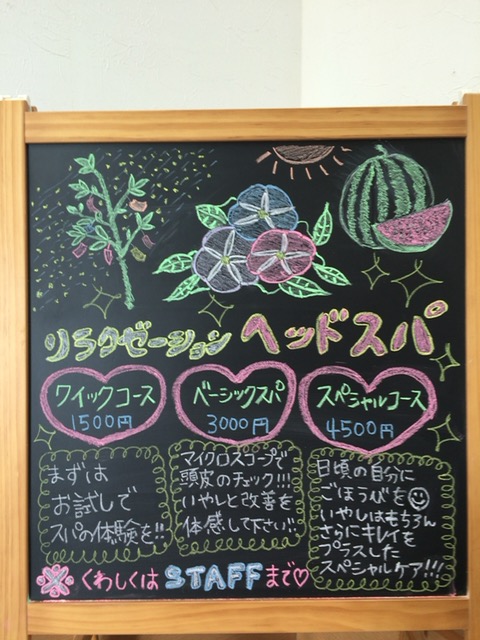 リラクゼーション ヘッドスパ
クイックコース
1500円
ベーシックスパ
3000円
スペシャルコース
4500円
まずは
お試しで
スパの体験を!!
マイクロスコープで
頭皮のチェック!!!
いやしと改善を
体感して下さい!!
日頃の自分に
ごほうびを
いやしはもちろん
さらにキレイを
プラスした
スペシャルケア!!!
※くわしくはSTAFFまで♡